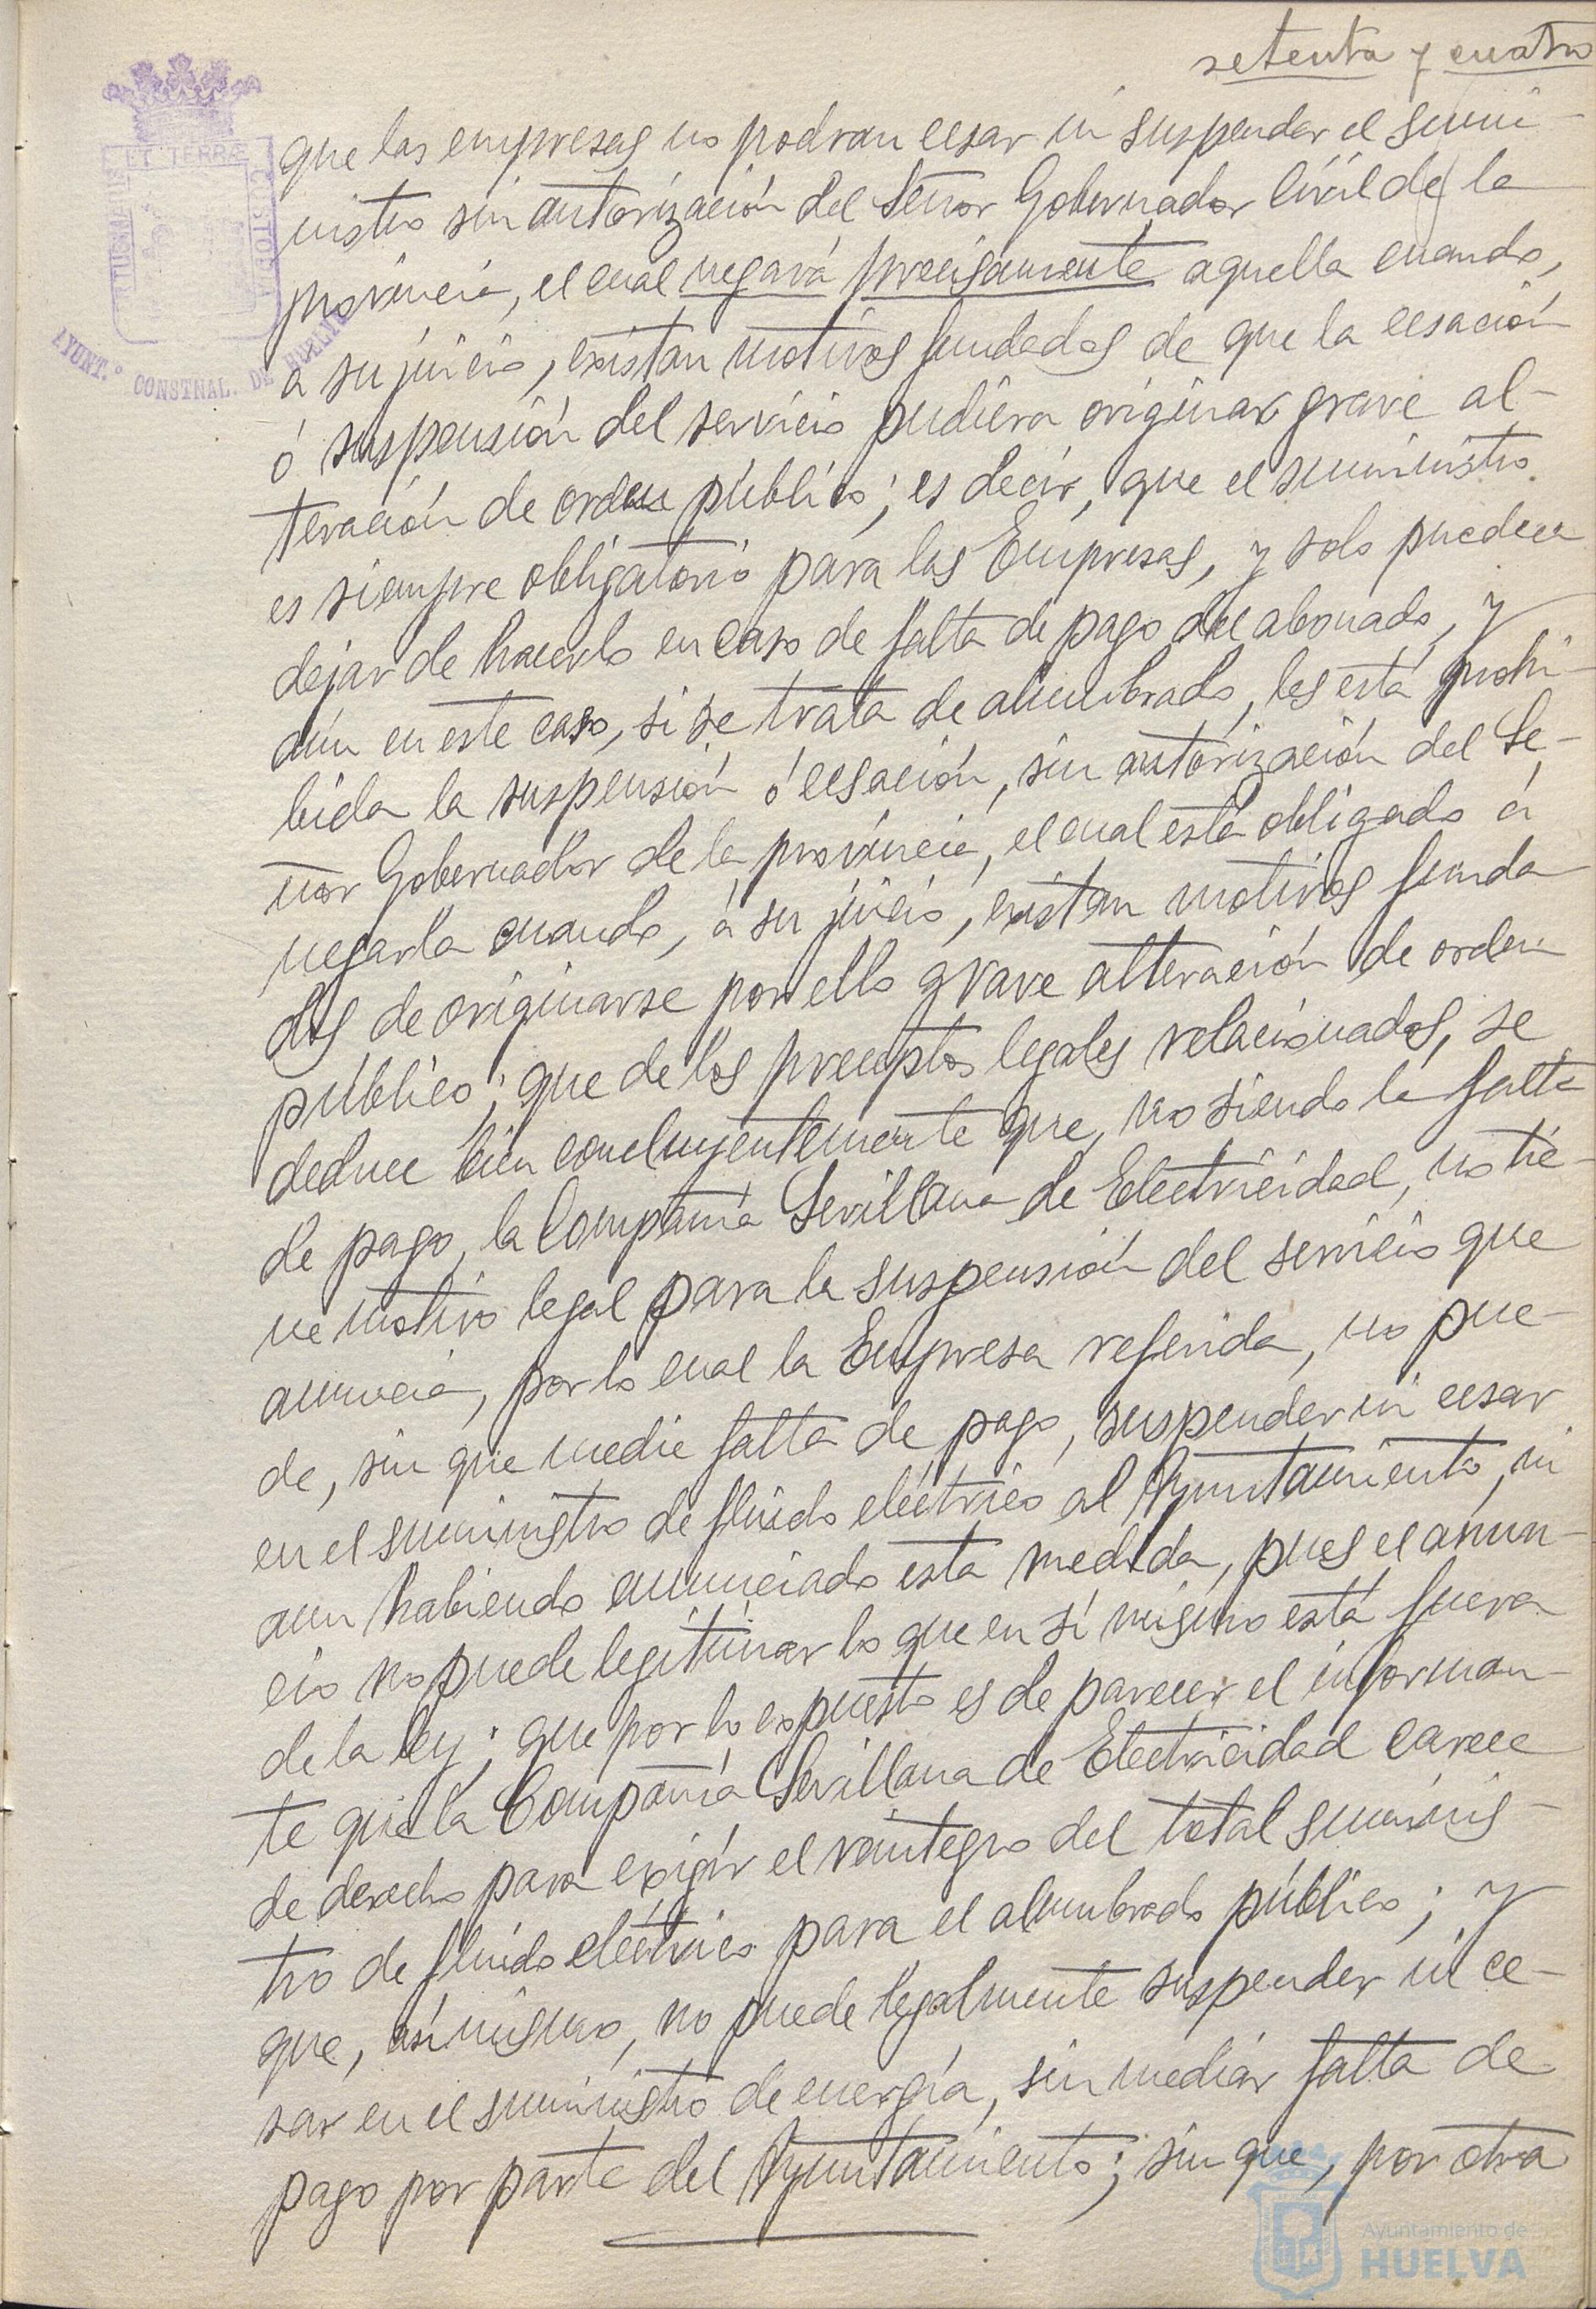 setenta y cuatro
que las empresas no podran cesar ni suspender el sumi-
nistro sin autorización del Señor Gobernador Civil de la
provincia, el cual negará precisamente aquella cuando,
a su juicio, existan motivos fundados de que la cesación
ó suspensión del servicio pudiera originar grave al-
teración de orden público; es decir, que el suministro
es siempre obligatorio para las Empresas, y solo pueden
dejar de hacerlo en caso de falta de pago del abonado, y
aún en este caso, si se trata de alumbrado, les está prohi-
bida la suspensión ó cesación, sin autorización del Se-
ñor Gobernador de la provincia, el cual está obligado á
negarla cuando, á su juicio, existan motivos funda
dos de originarse por ello grave alteración de orden
público; que de los preceptos legales relacionados, se
deduce bien concluyentemente que, no siendo la falta
de pago, la Compañía Sevillana de Electricidad, no tie-
ne motivo legal para la suspensión del servicio que
anuncia, por lo cual la Empresa referida, no pue-
de, sin que medie falta de pago, suspender ni cesar
en el suministro de fluido eléctrico al Ayuntamiento, ni
aun habiendo anunciado esta medida, pues el anun-
cio no puede legitimar lo que en sí mismo está fuera
de la ley; que por lo expuesto es de parecer el informan-
te que la Compañía Sevillana de Electricidad carece
de derecho para exigir el reintegro del total suminis-
tro de fluido eléctrico para el alumbrado público; y
que, asímismo, no puede legalmente suspender ni ce-
sar en el suministro de energía, sin mediar falta de
pago por parte del Ayuntamiento; sin que, por otra
ET TERRÆ
CUSTODIA
AYUNT.º CONSTNAL. DE HUELVA
Ayuntamiento de
HUELVA